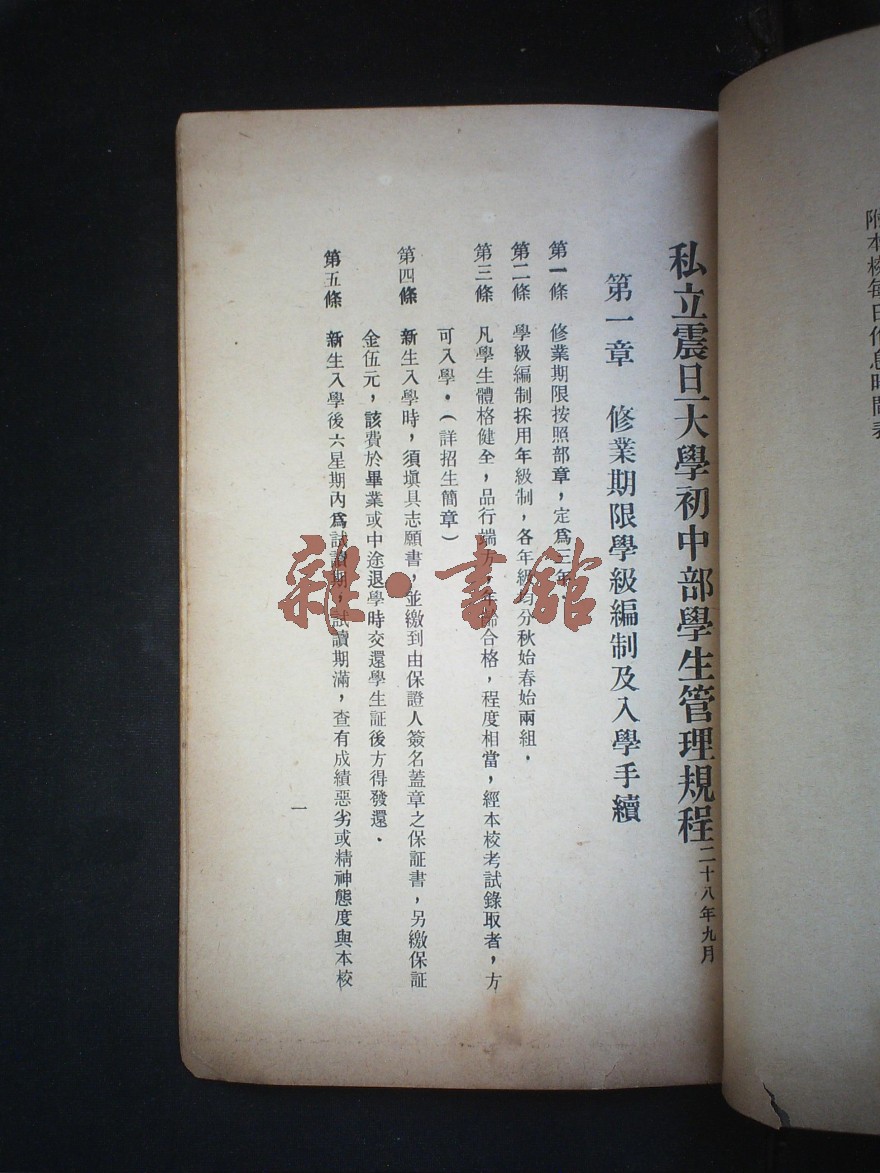 附本校每日作息時間表
私立震旦大學初中部學生管理規程二十八年九月
第一章　修業期限學級編制及入學手續
第一條　修業期限按照部章，定爲三年．
第二條　學級編制採用年級制，各年級均分秋始春始兩組．
第三條　凡學生體格健全，品行端方，年齡合格，程度相當，經本校考試錄取者，方
可入學．（詳招生簡章）
第四條　新生入學時，須塡具志願書，並繳到由保證人簽名蓋章之保証書，另繳保証
金伍元，該費於畢業或中途退學時交還學生証後方得發還．
第五條　新生入學後六星期內爲試讀期，試讀期滿，查有成績惡劣或精神態度與本校
一
雜·書館